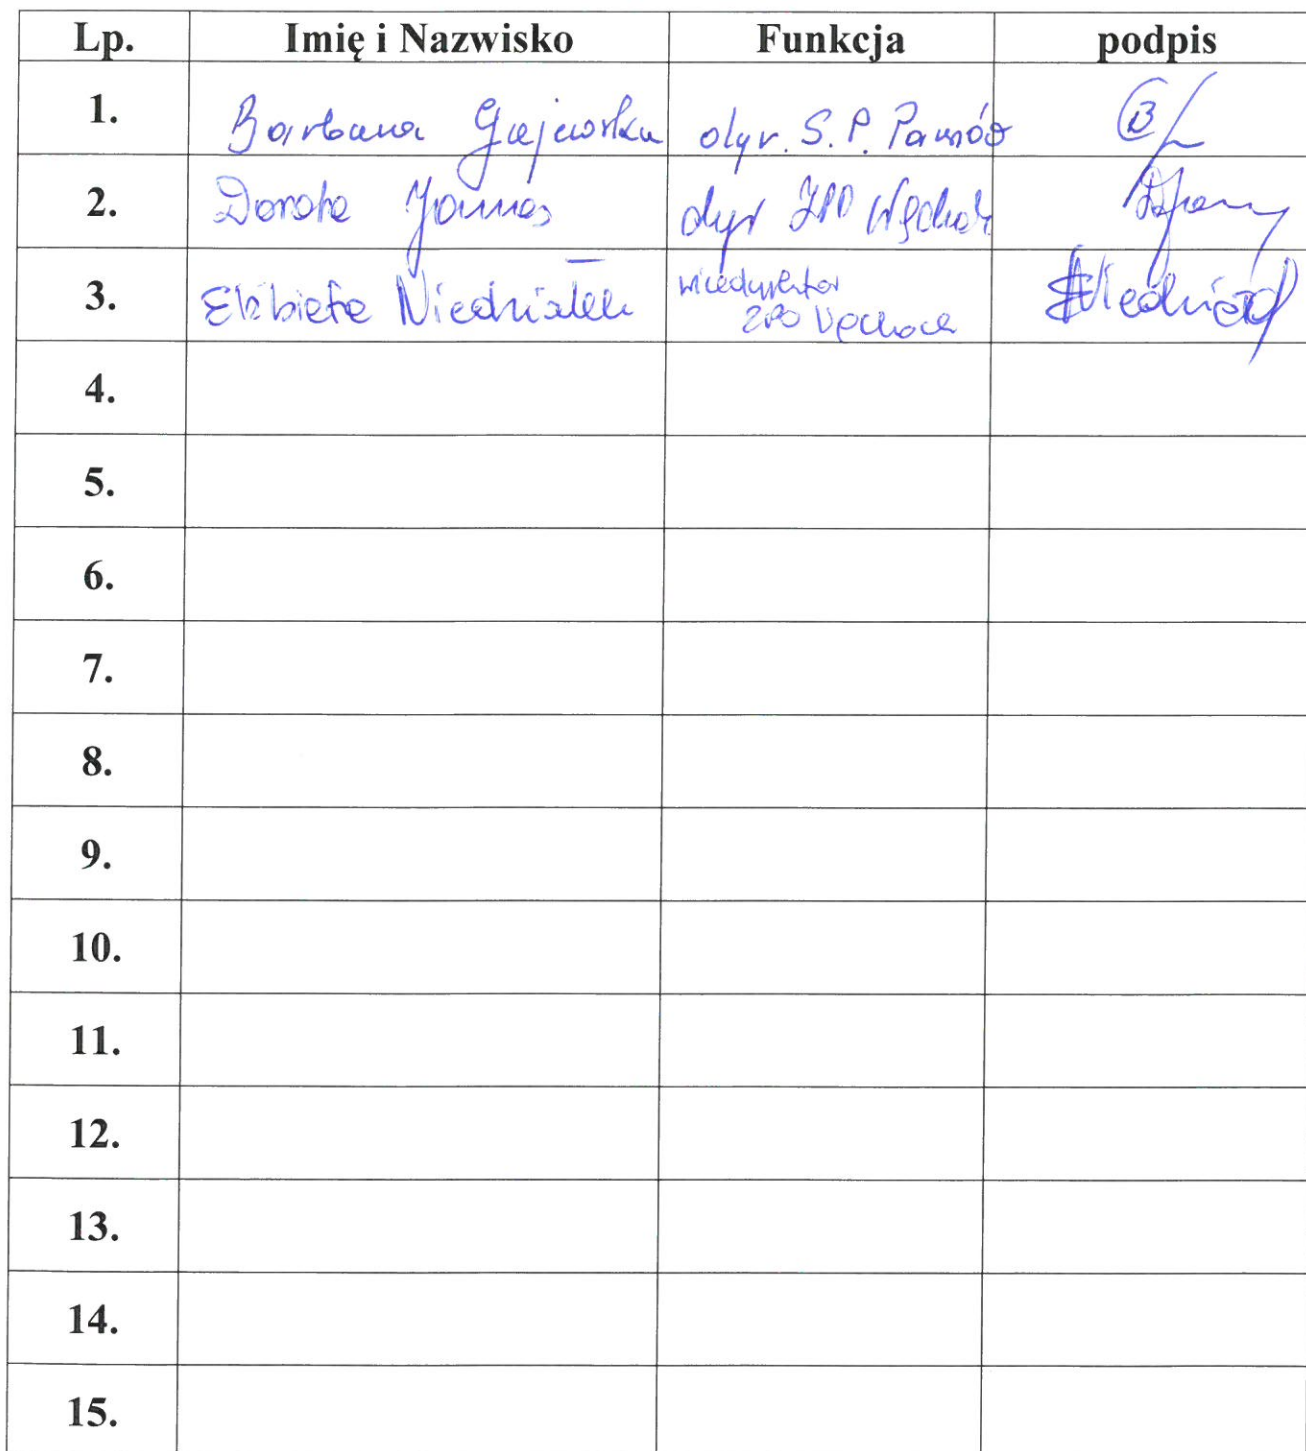 Lp. Imię i Nazwisko Funkcja podpis
1. Barbara Gajewska dyr. S.P. Parszów
2. Dorota dyr ZPO Wąchock
3. Elżbieta Niedziałek wicedyrektor
ZPO Wąchock
4.
5.
6.
7.
8.
9.
10.
11.
12.
13.
14.
15.